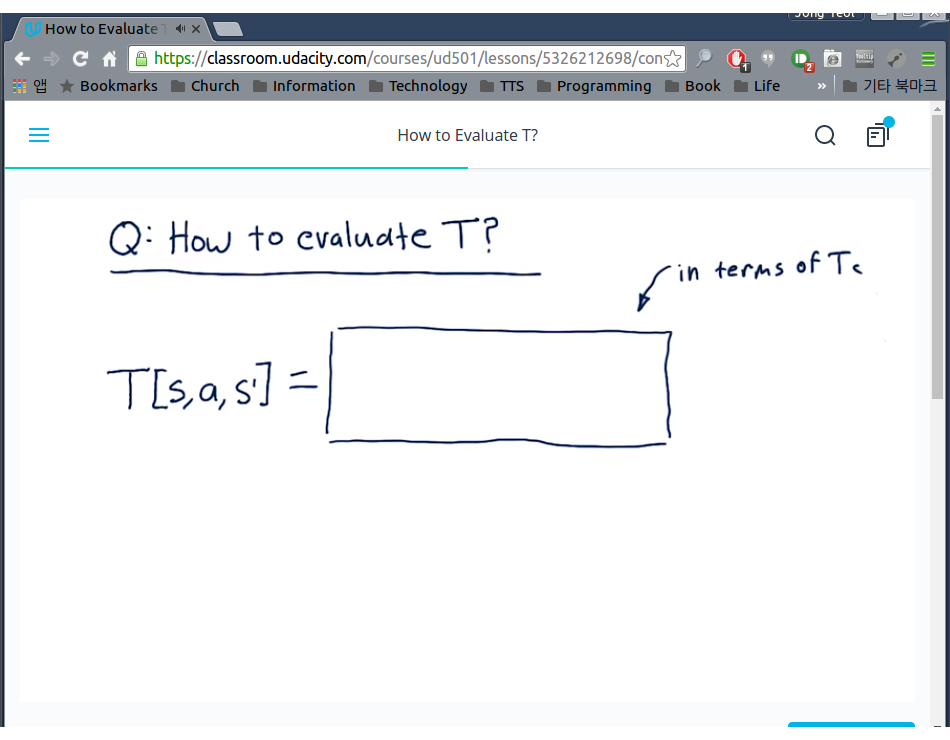 Jong Yeol
How to Evaluate T
https://classroom.udacity.com/courses/ud501/lessons/5326212698/con
1
2
앱 Bookmarks Church Information Technology TTS Programming Book Life » 기타 북마크
How to Evaluate T?
Q: How to evaluate T?
in terms of Tc
T[s,a,s'] =